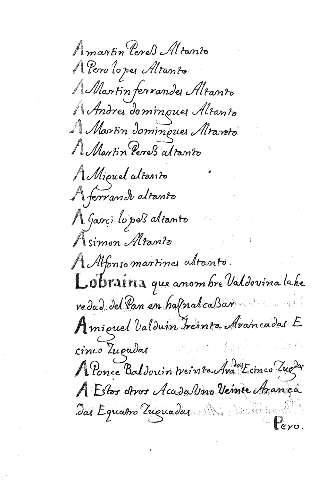 A martin Pereß Altanto
A Pero lopes Altanto
A Martin ferrandes Altanto
A Andres domingues Altanto
A Martin domingues Altanto
A Martin Pereß altanto
A Miguel altanto
A ferrando altanto
A Garçi lopeß altanto
A simon Altanto
A Alfonso martines altanto.
Lobraina que anombre Valdovina la he
redad. del Pan en hasnalcaßar
A miguel Valduin Treinta Arancadas E
cinco Zugadas
A Ponçe Baldouin treinta Ara.das E cinco Zugdas
A Estos otros A cada Uno Veinte Arança
das E quatro Zuguadas
Pero.